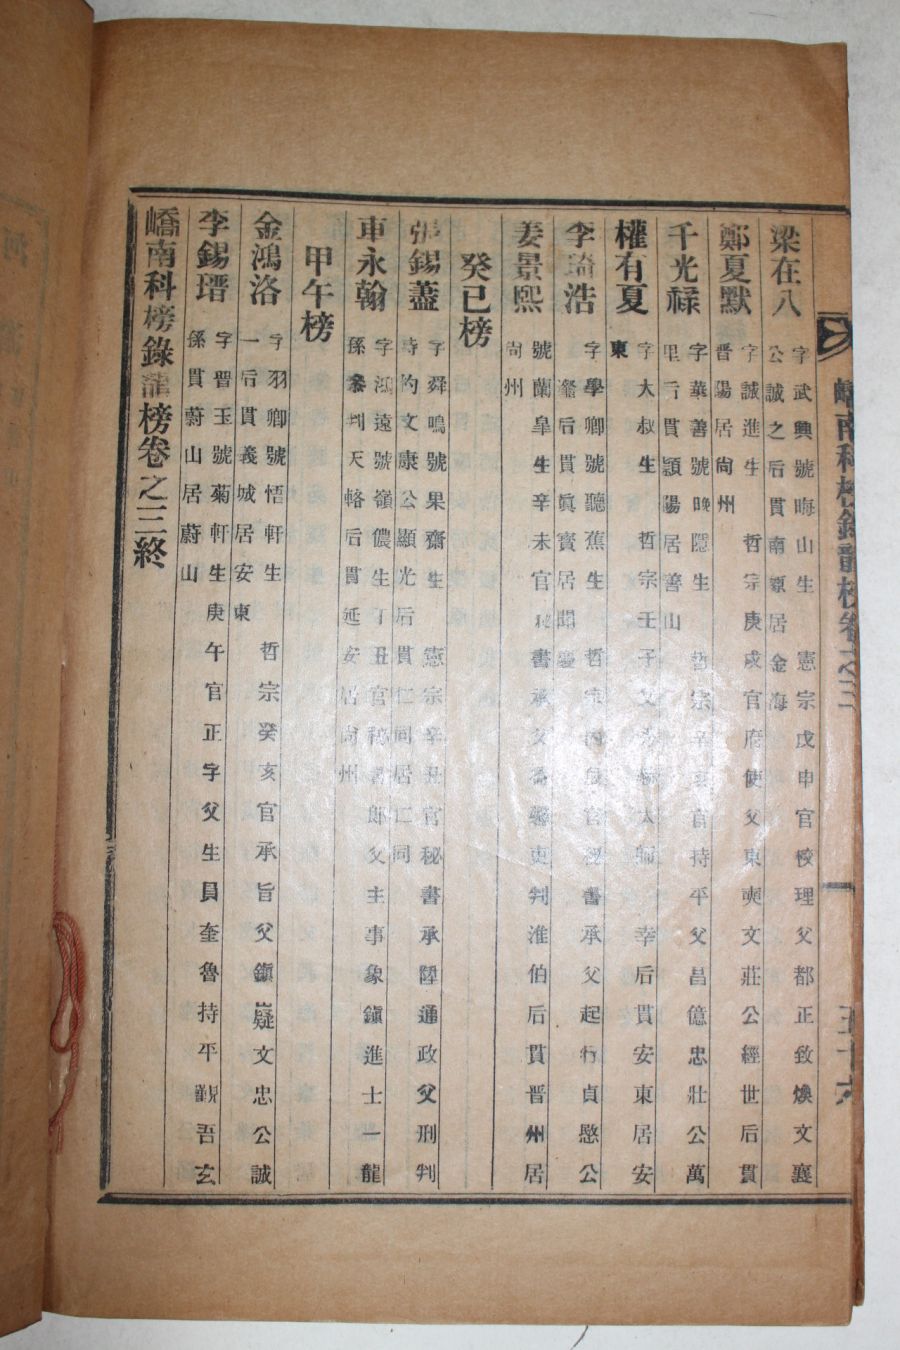 梁在八 字武興號晦山生 憲宗戊申官校理父都正致煥文襄
公誠之后貫南原居金海
鄭夏默 字誠進生 哲宗庚戌官府使父東奭文莊公經世后貫
晋陽居尙州
千光祿 字華善號晚隱生 哲宗辛亥官持平父昌億忠壯公萬
里后貫頴陽居善山
權有夏 字大叔生 哲宗壬子父 太師 幸后貫安東居安
東
李琦浩 字學卿號聽蕉生 哲宗 官秘書承父起行貞愍公
后貫眞寶居聞慶
姜景熙 號蘭皐生辛未官秘書承父 馨吏判淮伯后貫晋州居
尙州
癸巳榜
張錫藎 字舜鳴號果齋生 憲宗辛丑官秘書承陞通政父刑判
時杓文康公顯光后貫仁同居仁同
車永翰 字鴻遠號嶺儂生丁丑官秘書郎父主事象鎭進士一龍
孫參判天輅后貫延安居尙州
甲午榜
金鴻洛 字羽卿號悟軒生 哲宗癸亥官承旨父鎭嶷文忠公誠
一后貫義城居安東
李錫瑨 字晋玉號菊軒生庚午官正字父生員奎魯持平觀吾玄
孫貫蔚山居蔚山
嶠南科榜錄龍榜卷之三終
嶠南科榜錄龍榜卷之三
五十六